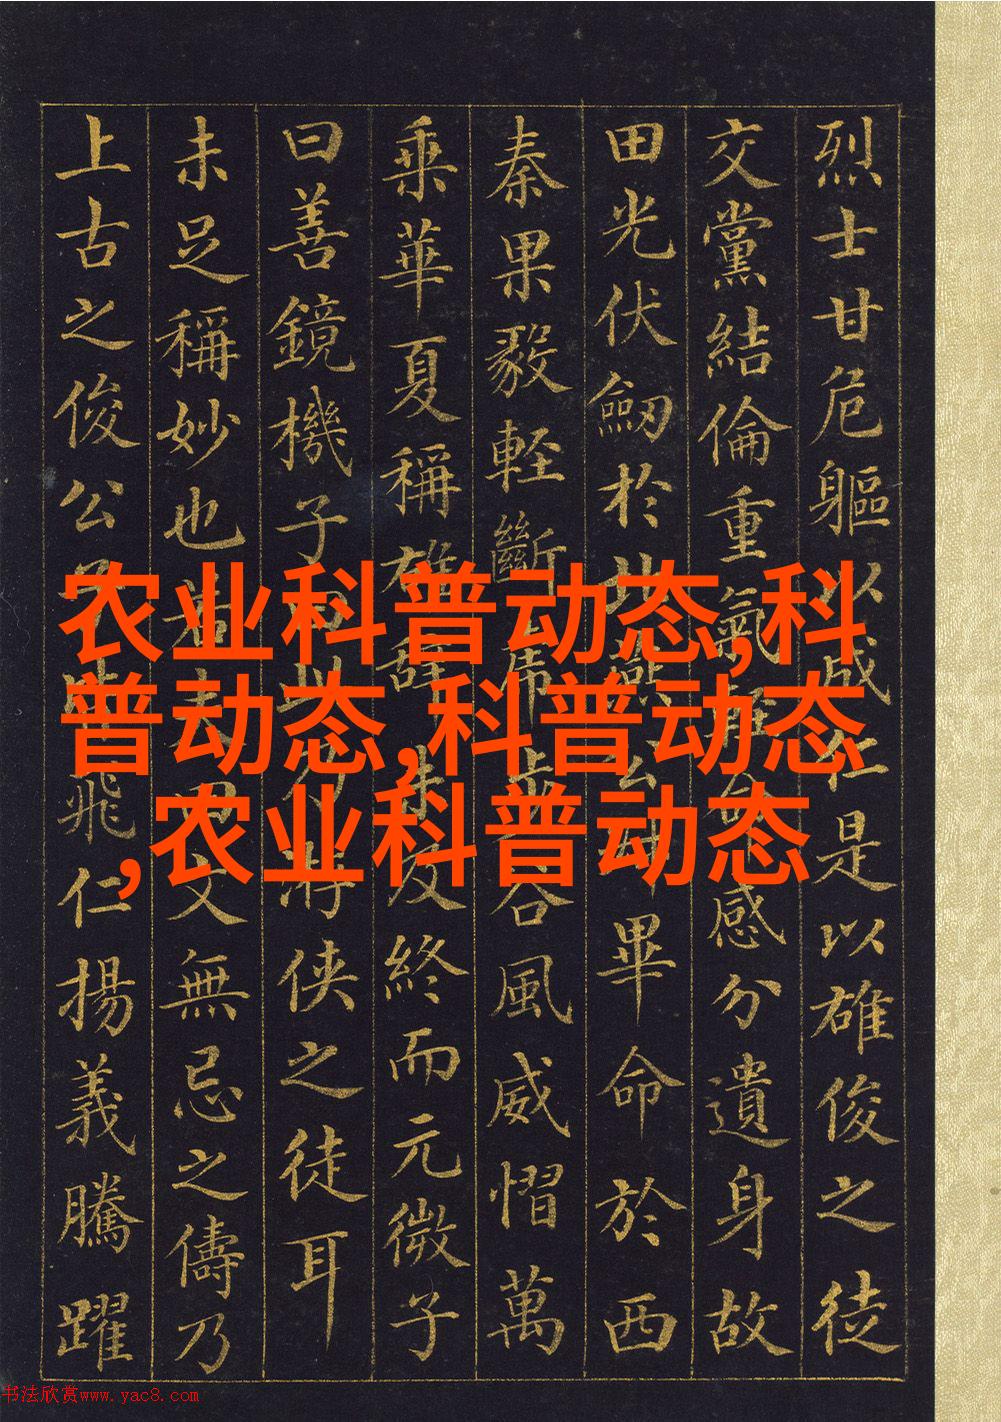 烈士甘危軀以成仁是以雄俊之徒
交黨結倫重氣感分遺身故
田光伏劒於畢命於西
秦果毅輕斷虎步谷風威慴萬
乘華夏稱雄辭未及終而元微子
曰善鏡機子此侠之徒耳
未足稱妙也若夫田文無忌之儔乃
上古之俊公飛仁揚義騰躍
农业科普动态,科
普动态,科普动态
,农业科普动态
书法欣赏www.yac8.com